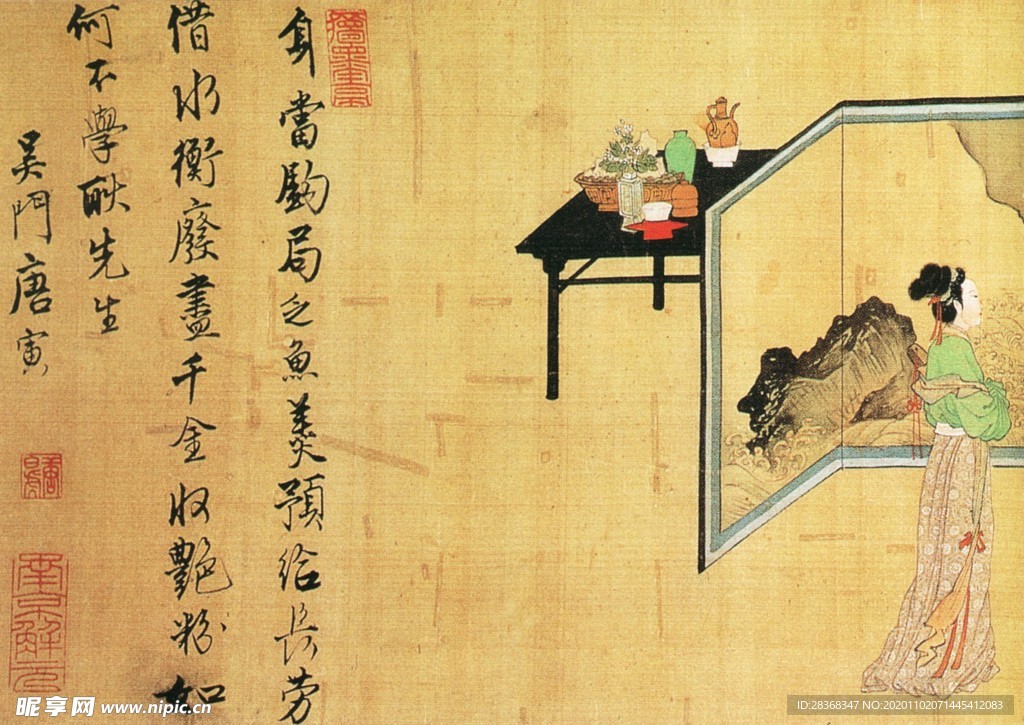 身當鉤局乏魚羹預給長勞
借水衡廢盡千金收艷粉如
何不學耿先生
吳門唐寅
南京解元
昵享网 www.nipic.cn
ID:28368347 NO:20201102071445412083